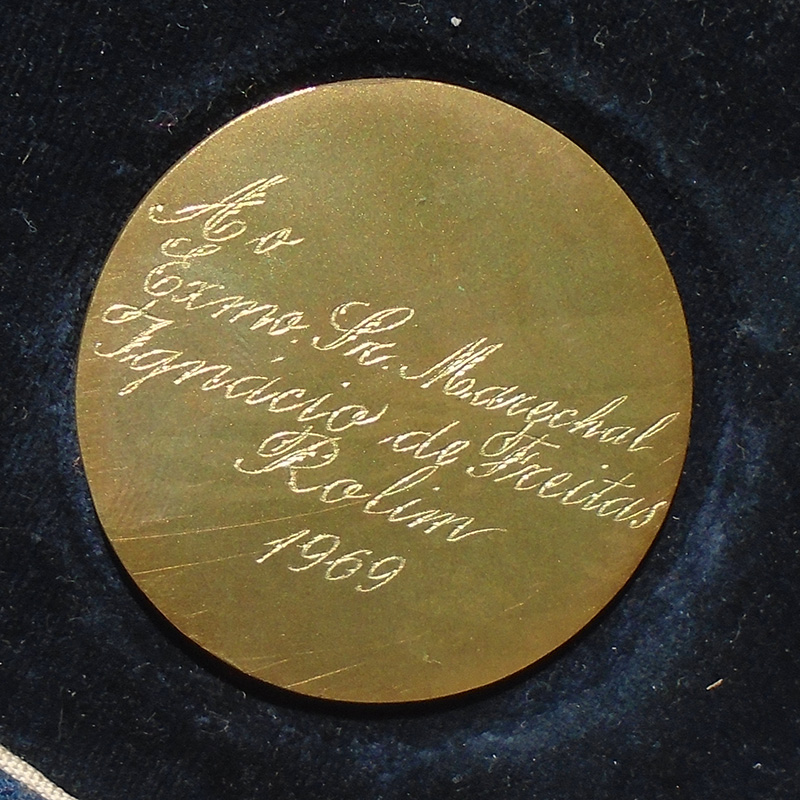 Ao
Exmo. Sr. Marechal
Ignácio de Freitas
Rolim
1969